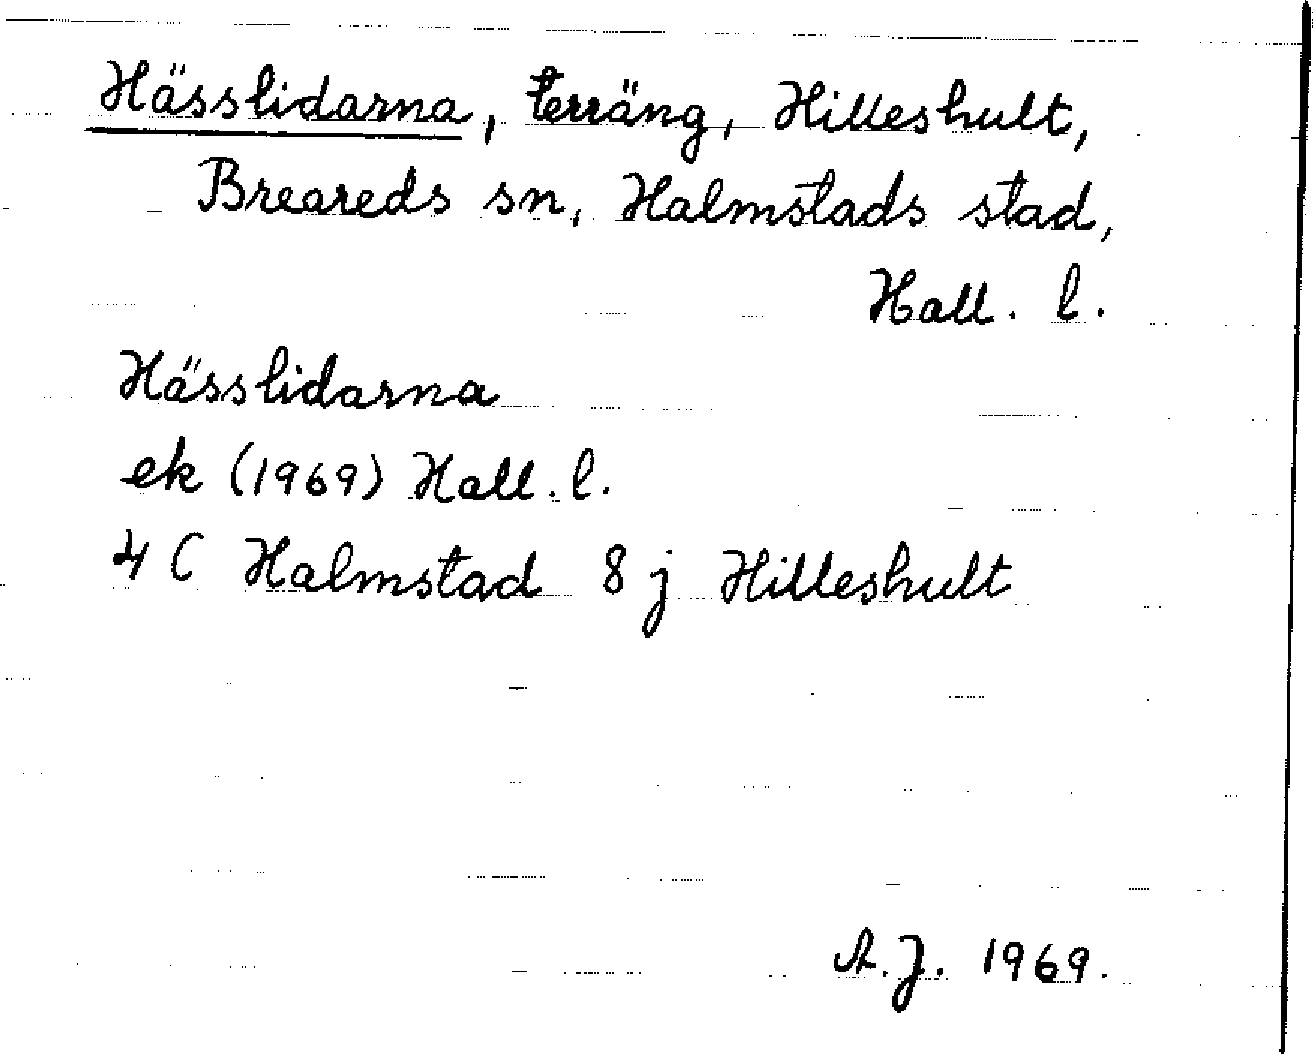 Hässlidarna, terräng, Hilleshult,
Breareds sn, Halmstads stad,
Hall. l.
Hässlidarna
ek (1969) Hall. l.
4 C Halmstad 8 j Hilleshult
A.J. 1969.